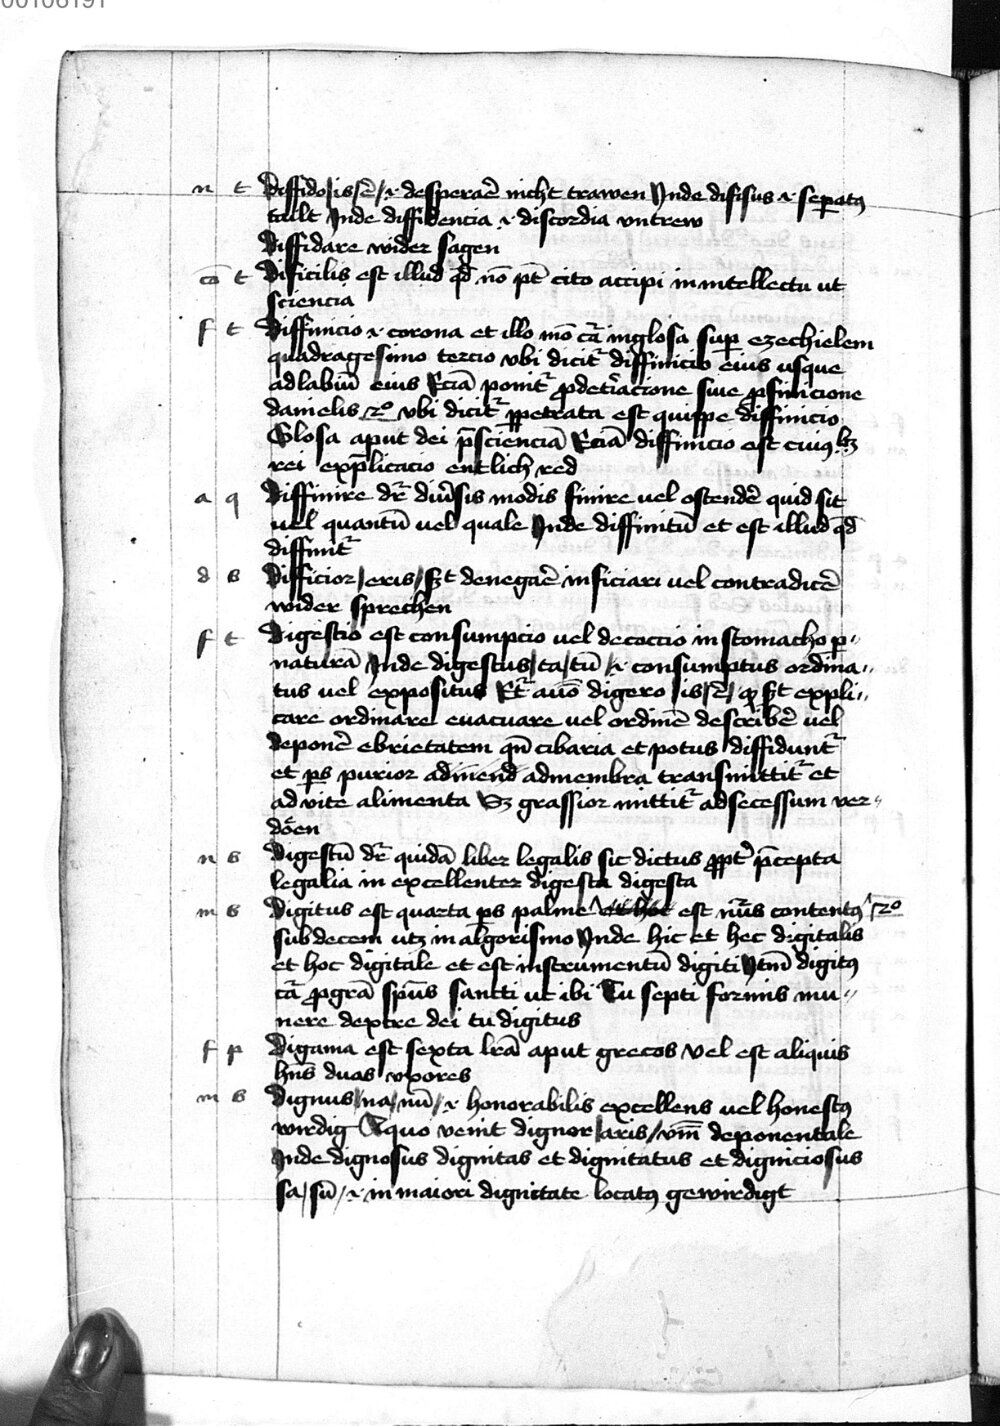 00106191
n t Diffido / is / e᷑ / i· desperar̄e nicht trawen Inde diffisus i· separatꝰ
tailt Inde diffidencia i· discordia vntrew
Diffidare wider sagen
cō t Dificilis est illud qd̄ nō pt̄ cito accipi in intellectu ut
sciencia
f t Diffinicio i· corona et illo mō cā in glosa suꝑ ezechielem
quadragesimo tercio vbi dicit᷑ diffinicio eius usque
ad labiū eius Eciā ponit᷑ ꝓ det᷑iacione siue ꝓ finicione
danielis 2º vbi dicit᷑ ꝑpetrata est quippe diffinicio
Glosa aput dei p̄scienciā Eciā diffinicio est cuiꝰ lꝫ
rei explicacio entlich red
a q Diffinire dr̄ diu᷑sis modis finire uel ostender̄e quid sit
uel quantū uel quale Inde diffinitū et est illud qd̄
diffinit᷑
d s Difficior / eris / denegar̄e inficiari uel contradicer̄e
wider sprechen
f t Digestio est consumpcio uel decoccio in stomacho ꝑ
naturā Inde digestus / ta / tū / i· consumptus ordina
tus uel expositus Et᷑ digero / is / expli
care ordinare euacuare uel ordinē describer̄e uel
deponer̄e ebrietatem qn̄ cibaria et potus diffidunt᷑
et ꝑs purior ad membra transmittit᷑ et
ad vite alimenta Sꝫ grassior mittit᷑ ad secessum ver
döen
n s Digestū dr̄ quidā liber legalis sic dictus ꝓpt᷑ p̄cepta
legalia in excellenter digesta digesta
m s Digitus est quarta ꝑs palme est nūs contentꝰ 2º
sub decem utꝫ in algorismo Inde hic et hec digitalis
et hoc digitale et est instrumentū digiti Itm̄ digitꝰ
cā ꝓ grā spūs sancti ut ibi Tu septi formis mu
nere dextre dei tu digitus
f p Digama est sexta lrā aput grecos Vel est aliquis
hn̄s duas vxores
m s Dignus / na / nū / i· honorabilis excellens uel honestꝰ
wirdig A quo venit dignor / aris / vm̄ deponentale
Inde dignosus dignitas et dignitatus et digniciosus
sa / sū / i· in maiori dignitate locatꝰ gewirdigt